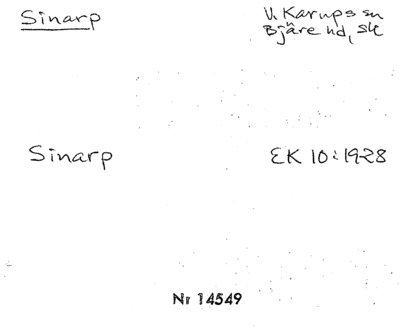 Sinarp
V. Karups sn
Bjäre hd, Sk
Sinarp
EK 10:1928
Nr 14549